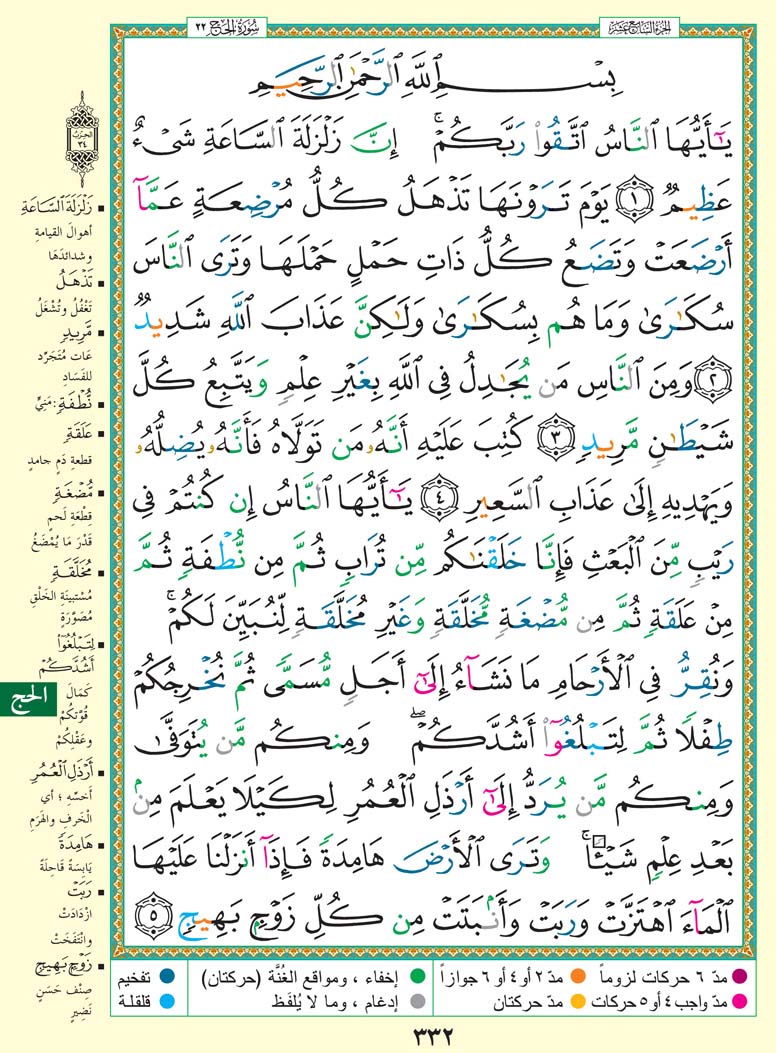 سُورَةُ الحَجّ ٢٢
الجُزءُ السَّابِعَ عَشَرَ
بِسْمِ ٱللَّهِ ٱلرَّحْمَٰنِ ٱلرَّحِيمِ
يَٰٓأَيُّهَا ٱلنَّاسُ ٱتَّقُوا۟ رَبَّكُمْ ۚ إِنَّ زَلْزَلَةَ ٱلسَّاعَةِ شَىْءٌ
عَظِيمٌ ١ يَوْمَ تَرَوْنَهَا تَذْهَلُ كُلُّ مُرْضِعَةٍ عَمَّآ
أَرْضَعَتْ وَتَضَعُ كُلُّ ذَاتِ حَمْلٍ حَمْلَهَا وَتَرَى ٱلنَّاسَ
سُكَٰرَىٰ وَمَا هُم بِسُكَٰرَىٰ وَلَٰكِنَّ عَذَابَ ٱللَّهِ شَدِيدٌ
٢ وَمِنَ ٱلنَّاسِ مَن يُجَٰدِلُ فِى ٱللَّهِ بِغَيْرِ عِلْمٍ وَيَتَّبِعُ كُلَّ
شَيْطَٰنٍ مَّرِيدٍ ٣ كُتِبَ عَلَيْهِ أَنَّهُۥ مَن تَوَلَّاهُ فَأَنَّهُۥ يُضِلُّهُۥ
وَيَهْدِيهِ إِلَىٰ عَذَابِ ٱلسَّعِيرِ ٤ يَٰٓأَيُّهَا ٱلنَّاسُ إِن كُنتُمْ فِى
رَيْبٍ مِّنَ ٱلْبَعْثِ فَإِنَّا خَلَقْنَٰكُم مِّن تُرَابٍ ثُمَّ مِن نُّطْفَةٍ ثُمَّ
مِنْ عَلَقَةٍ ثُمَّ مِن مُّضْغَةٍ مُّخَلَّقَةٍ وَغَيْرِ مُخَلَّقَةٍ لِّنُبَيِّنَ لَكُمْ ۚ
وَنُقِرُّ فِى ٱلْأَرْحَامِ مَا نَشَآءُ إِلَىٰٓ أَجَلٍ مُّسَمًّى ثُمَّ نُخْرِجُكُمْ
طِفْلًا ثُمَّ لِتَبْلُغُوٓا۟ أَشُدَّكُمْ ۖ وَمِنكُم مَّن يُتَوَفَّىٰ
وَمِنكُم مَّن يُرَدُّ إِلَىٰٓ أَرْذَلِ ٱلْعُمُرِ لِكَيْلَا يَعْلَمَ مِنۢ
بَعْدِ عِلْمٍ شَيْـًٔا ۚ وَتَرَى ٱلْأَرْضَ هَامِدَةً فَإِذَآ أَنزَلْنَا عَلَيْهَا
ٱلْمَآءَ ٱهْتَزَّتْ وَرَبَتْ وَأَنۢبَتَتْ مِن كُلِّ زَوْجٍۭ بَهِيجٍ ٥
الحِزْبُ
٣٤
▪ زَلْزَلَةَ ٱلسَّاعَةِ
أهوالَ القيامةِ
وشدائدَها
▪ تَذْهَلُ
تَغْفُلُ وتُشْغَلُ
▪ مَّرِيدٍ
عَاتٍ مُتَجَرِّد
للفَسَادِ
▪ نُّطْفَةٍ: مَنِيّ
▪ عَلَقَةٍ
قطعة دَمٍ جامدٍ
▪ مُّضْغَةٍ
قِطْعَةِ لَحمٍ
قَدْرَ مَا يُمْضَغُ
▪ مُّخَلَّقَةٍ
مُسْتبِينَةِ الخَلْقِ
مُصَوَّرَةٍ
▪ لِتَبْلُغُوٓا۟
أَشُدَّكُمْ
كَمَالَ
قُوَّتكُمْ
وعَقْلِكُمْ
▪ أَرْذَلِ ٱلْعُمُرِ
أَخَسِّهِ ؛ أي
الخَرفِ والهَرَمِ
▪ هَامِدَةً
يَابِسَةً قَاحِلَةً
▪ رَبَتْ
ازْدَادَتْ
وانْتَفَخَتْ
▪ زَوْجٍۭ بَهِيجٍ
صِنْفٍ حَسَنٍ
نَضِيرٍ
الحج
مدّ ٦ حركات لزوماً ● مدّ ٢ أو ٤ أو ٦ جوازاً ● إخفاء ، ومواقع الغُنَّة (حركتان) ● تفخيم
مدّ واجب ٤ أو ٥ حركات ● مدّ حركتان ● إدغام ، وما لا يُلفَظ ● قلقلة
٣٣٢